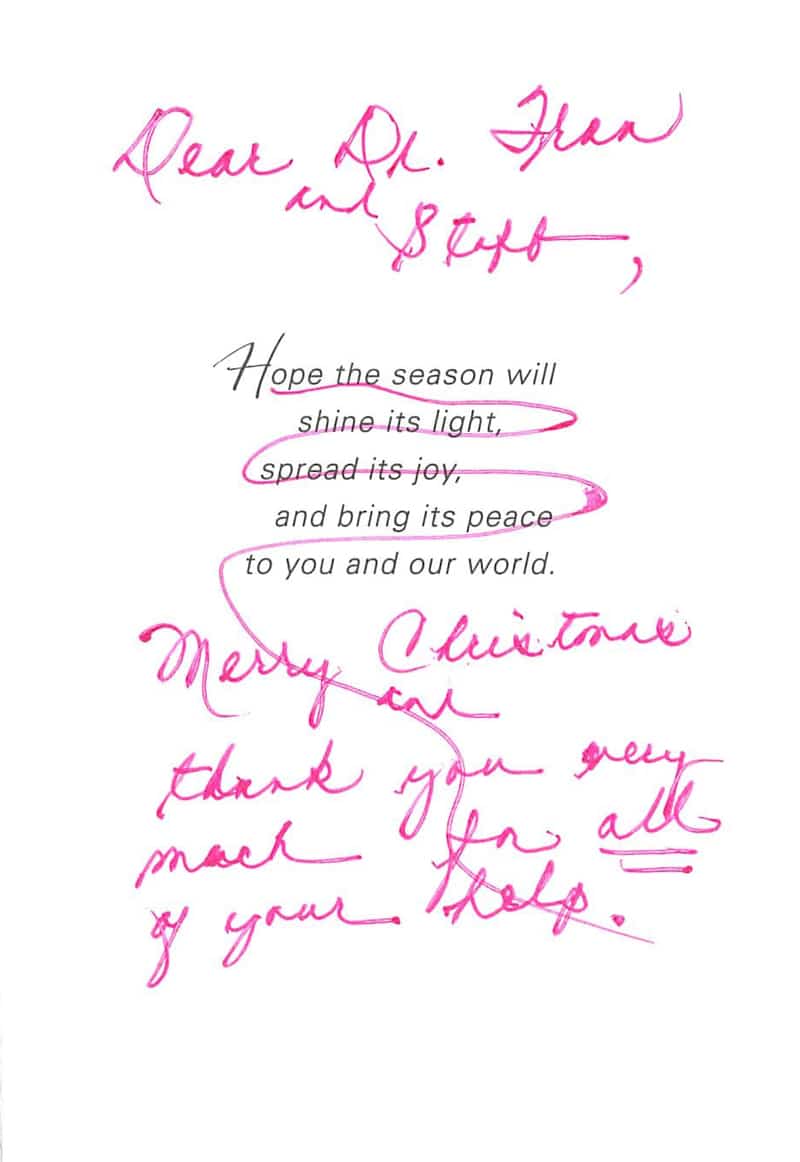 Dear Dr. Fran
and
Staff,
Hope the season will
shine its light,
spread its joy,
and bring its peace
to you and our world.
Merry Christmas
and
thank you very
much for all
of your help.